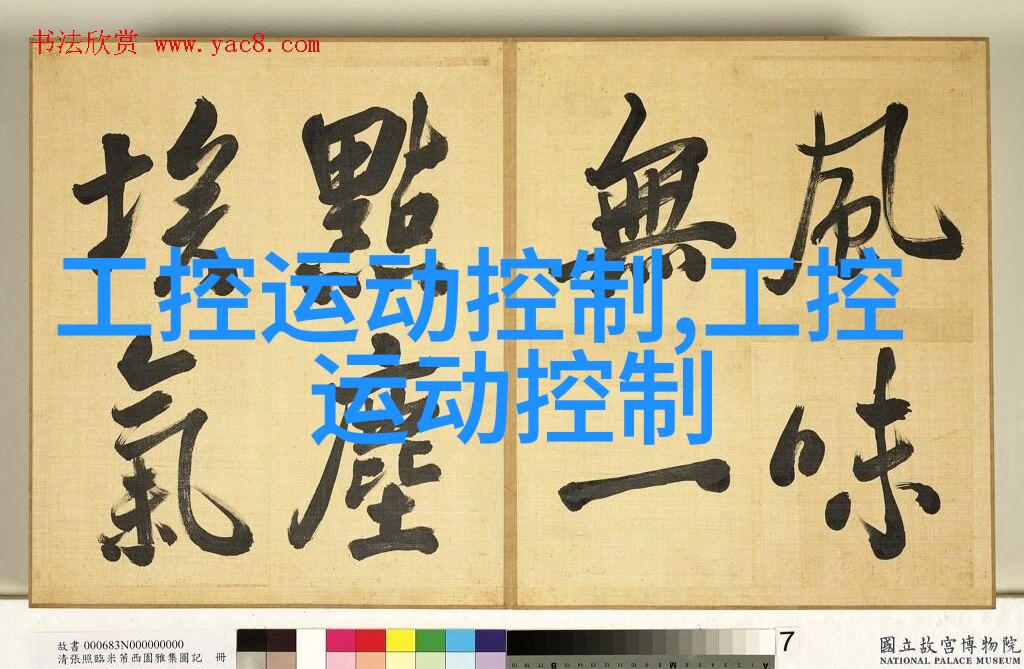 书法欣赏 www.yac8.com
風味
無一
點塵
埃氣
工控运动控制,工控
运动控制
故書 000683N000000000
清張照臨米芾西園雅集圖記 冊
7
國立故宮博物院
NATIONAL PALACE MUSEUM